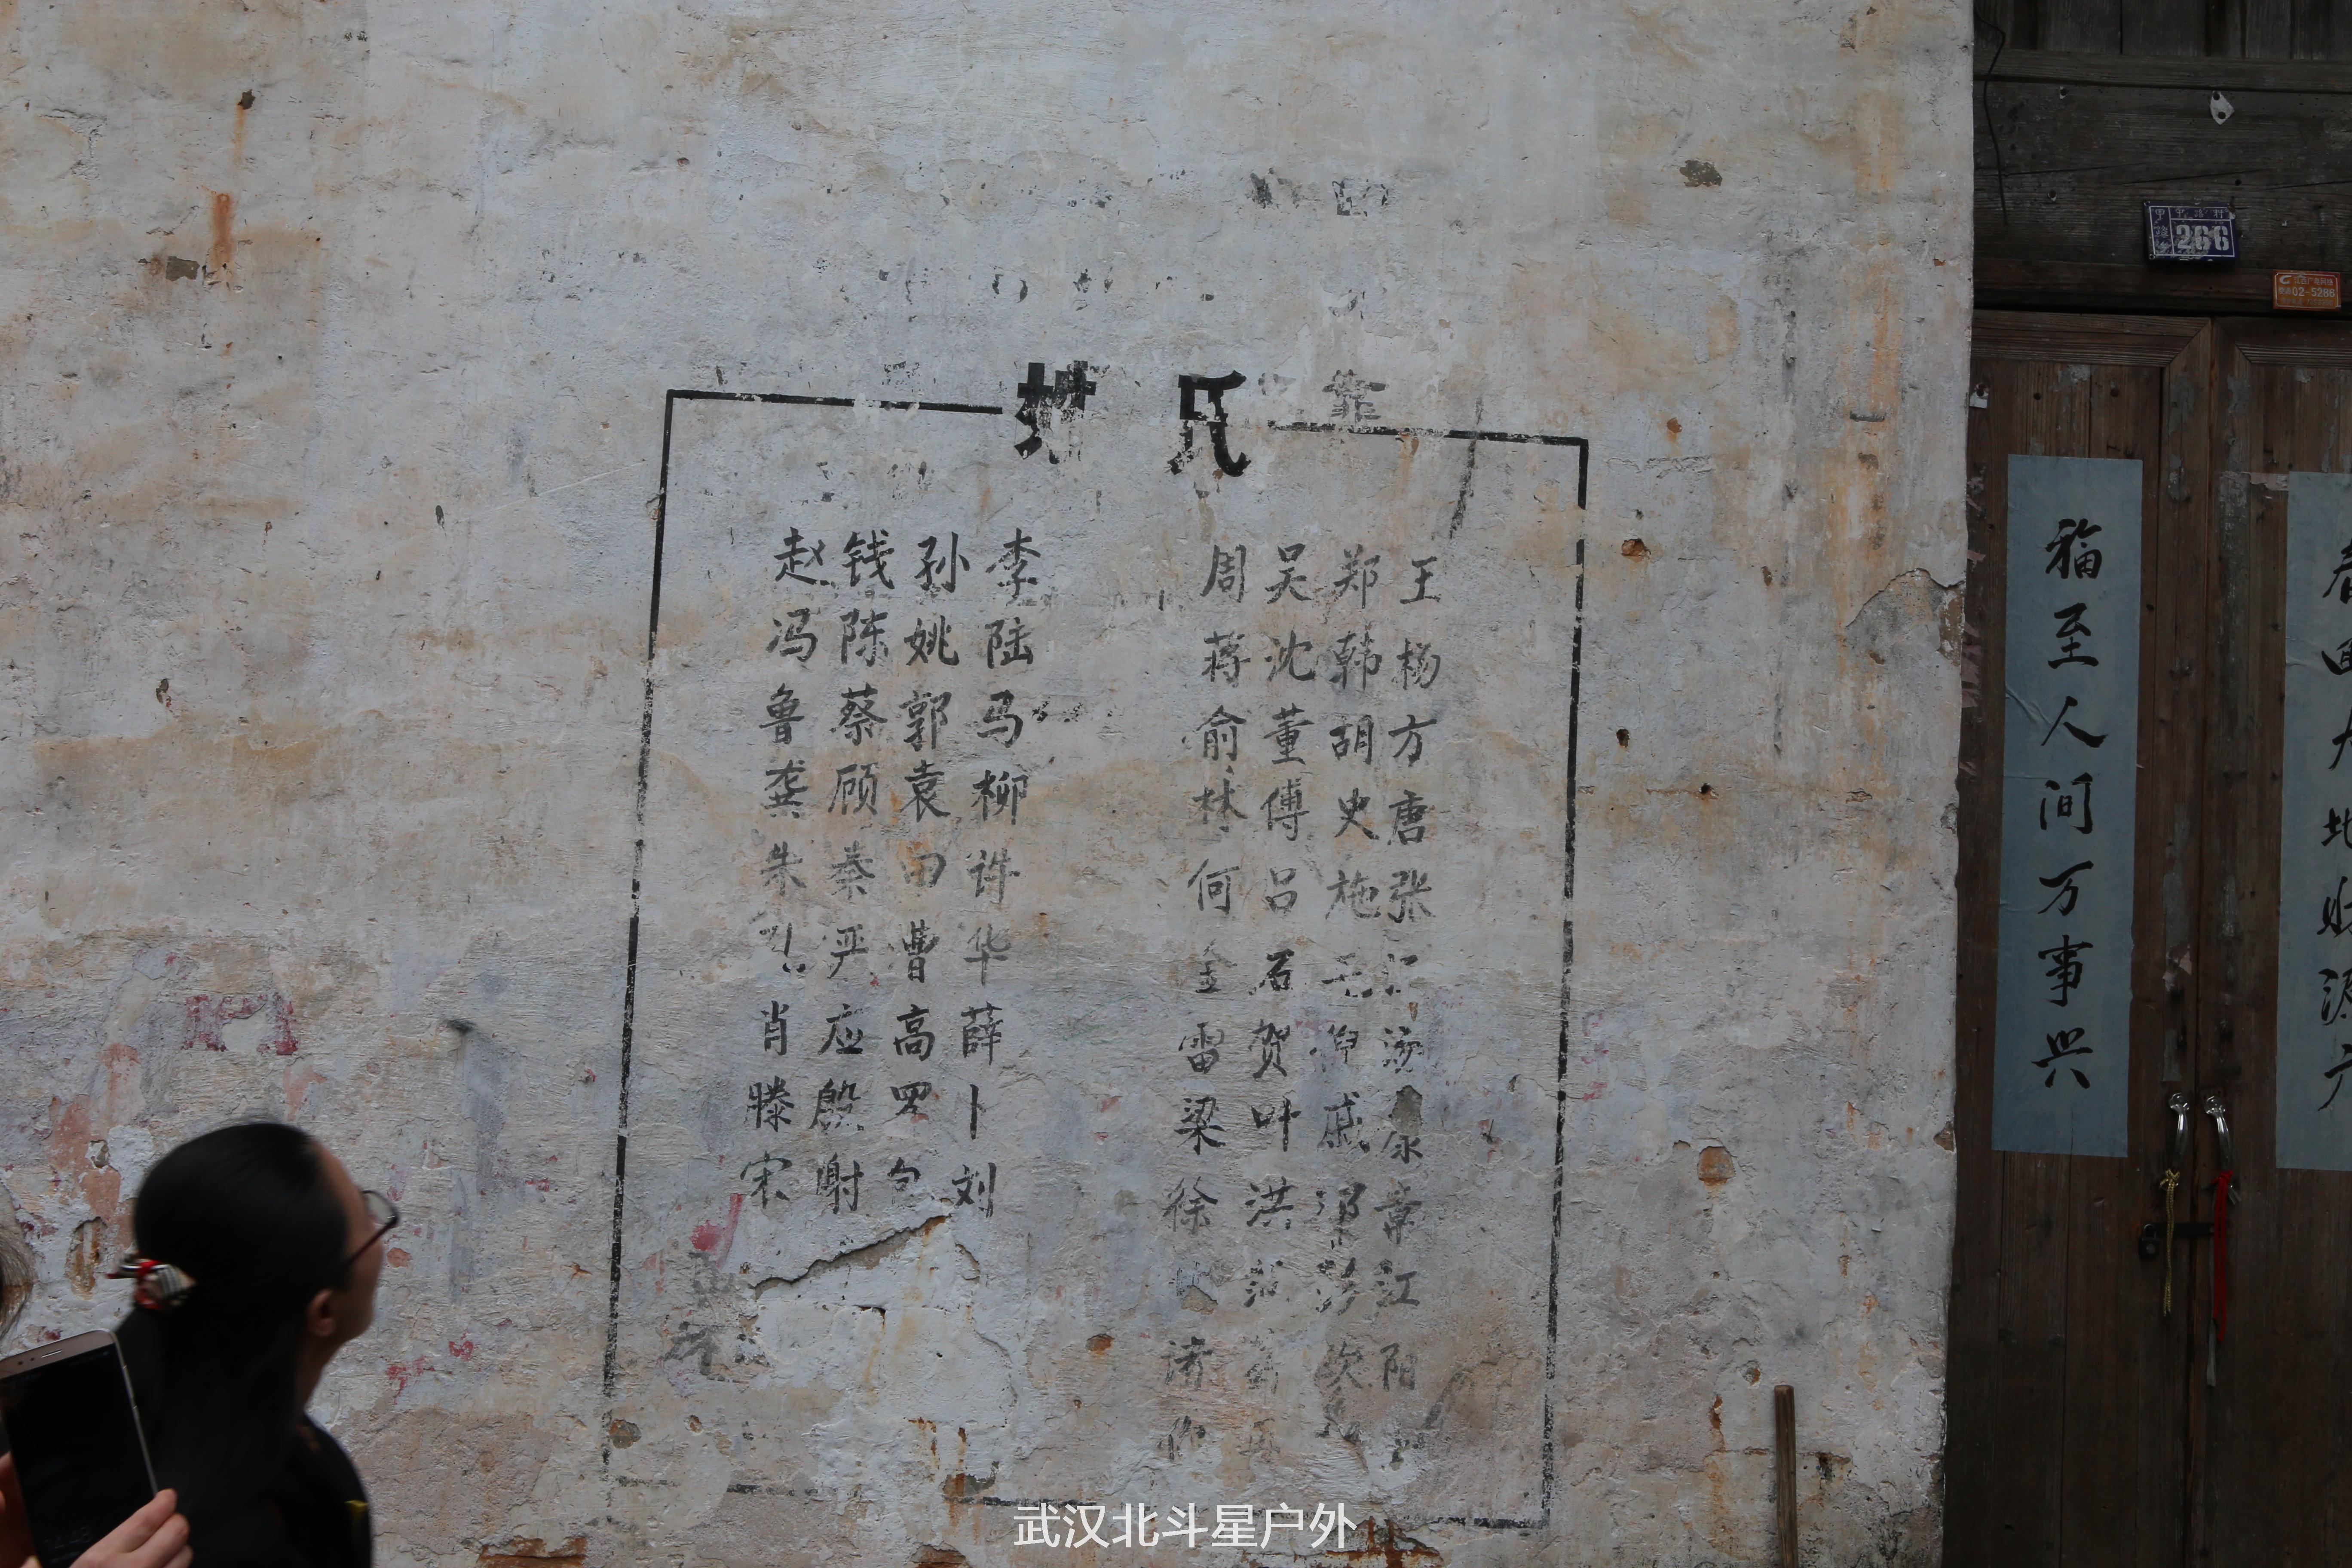 姓 氏
靠
赵 钱 孙 李
冯 陈 姚 陆
鲁 蔡 郭 马
龚 顾 袁 柳
朱 秦 田 许
严 曹 华
肖 应 高 薛
滕 殷 罗 卜
宋 谢 包 刘
周 吴 郑 王
蒋 沈 韩 杨
俞 董 胡 方
林 傅 史 唐
何 吕 施 张
金 石 毛 江
雷 贺 倪 汤
梁 叶 戚 康
徐 洪 邹 章
彭 江
诸 阳
266
02-5286
福至人间万事兴
春回大地财源广
武汉北斗星户外